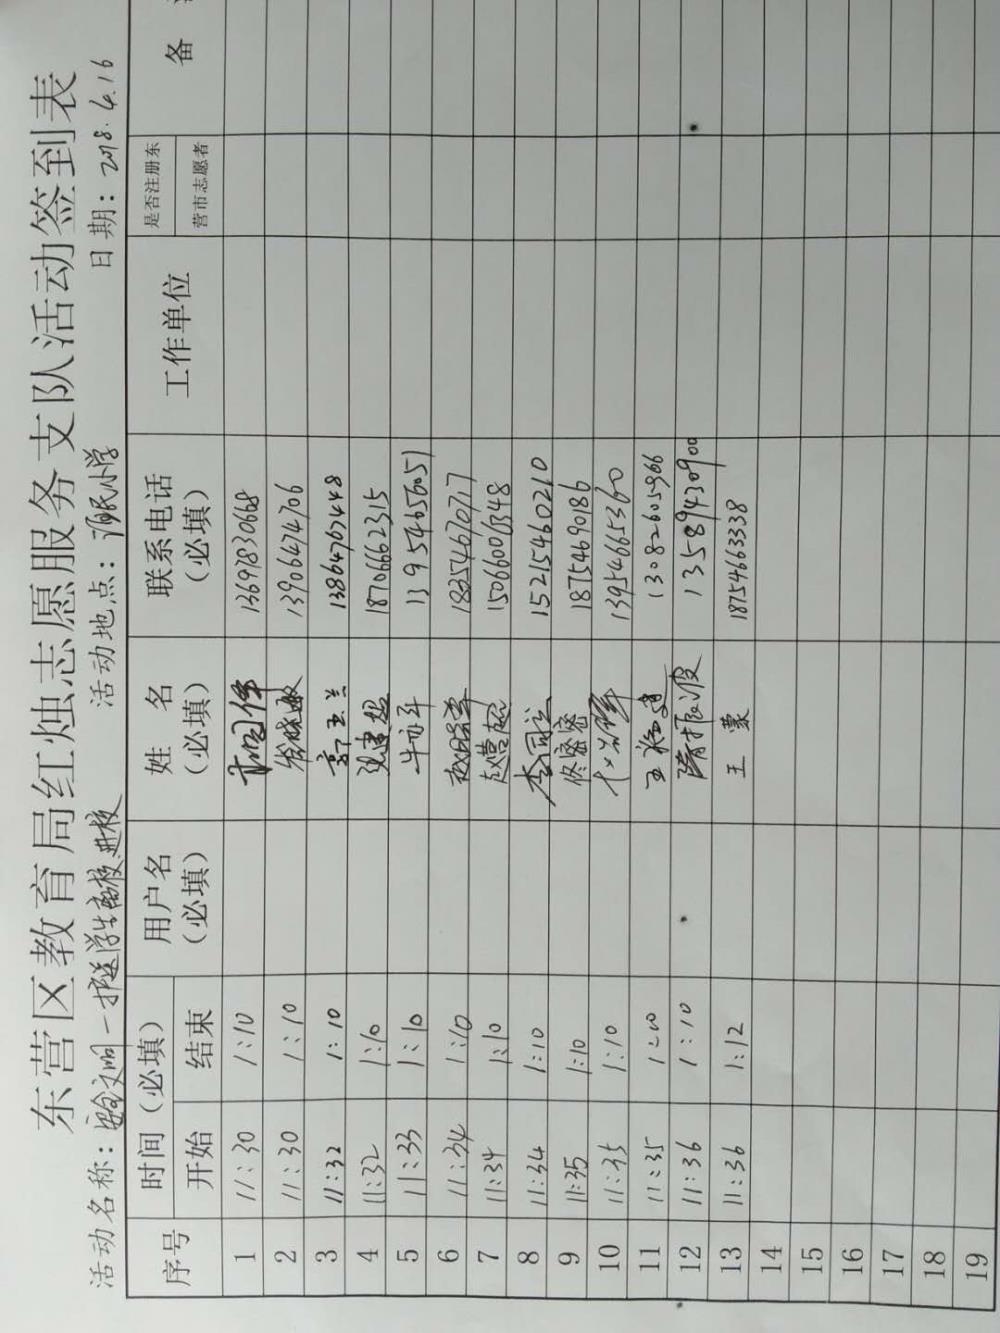 东营区教育局红烛志愿服务支队活动签到表
活动名称：安全文明一护送学生离校、进校 活动地点： 小学 日期：2018.4.16
序号 时间（必填） 用户名（必填） 姓 名（必填） 联系电话（必填） 工作单位 是否注册东营市志愿者 备
开始 结束
1 11:30 1:10 13697830668
2 11:30 1:10 13906474706
3 11:32 1:10 郭玉兰 13864767448
4 11:32 1:10 张建超 18706662315
5 11:33 1:10 13954656051
6 11:34 1:10 18254670717
7 11:34 1:10 赵营超 15066001348
8 11:34 1:10 15215460210
9 11:35 1:10 佟密密 18754690186
10 11:35 1:10 13954665360
11 11:35 1:10 13082605966
12 11:36 1:10 隋振波 13589430900
13 11:36 1:12 王 蒙 18754663338
14
15
16
17
18
19